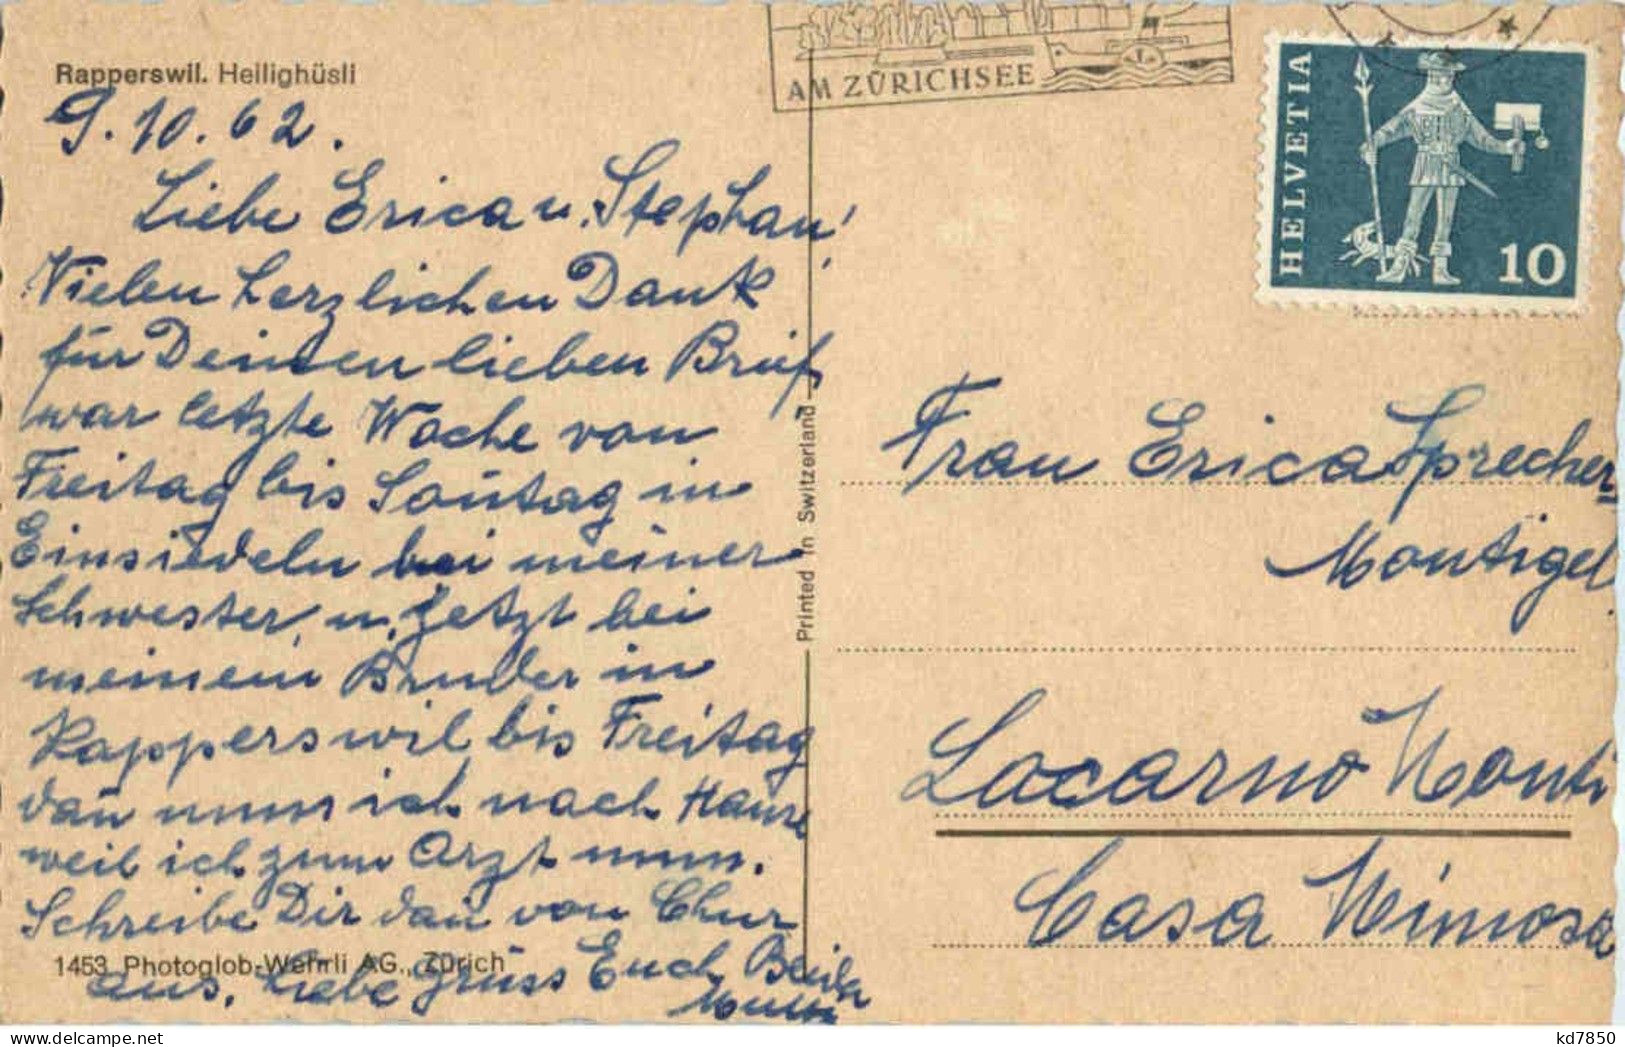 Rapperswil. Heilighüsli
9.10.62.
Liebe Erica u. Stephan!
Vielen herzlichen Dank
für Deinen lieben Brief
war letzte Woche von
Freitag bis Soñtag in
Einsiedeln bei meiner
Schwester, u. jetzt bei
meinem Bruder in
Rapperswil bis Freitag
dañ muss ich nach Hause
weil ich zum Arzt muss.
Schreibe Dir dañ von Chur
aus. Liebe Grüss Euch Beiden
1453 Photoglob-Wehrli AG., Zürich
Printed in Switzerland
AM ZÜRICHSEE
HELVETIA
10
Frau Erica Sprecher
Montigel
Locarno Monti
Casa Mimosa
kd7850